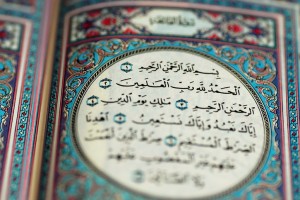 سورة الفاتحة
بِسْمِ اللَّهِ الرَّحْمَٰنِ الرَّحِيمِ
الْحَمْدُ لِلَّهِ رَبِّ الْعَالَمِينَ
الرَّحْمَٰنِ الرَّحِيمِ مَالِكِ يَوْمِ الدِّينِ
إِيَّاكَ نَعْبُدُ وَإِيَّاكَ نَسْتَعِينُ اهْدِنَا
الصِّرَاطَ الْمُسْتَقِيمَ صِرَاطَ الَّذِينَ أَنْعَمْتَ
عَلَيْهِمْ غَيْرِ الْمَغْضُوبِ عَلَيْهِمْ
وَلَا الضَّالِّينَ